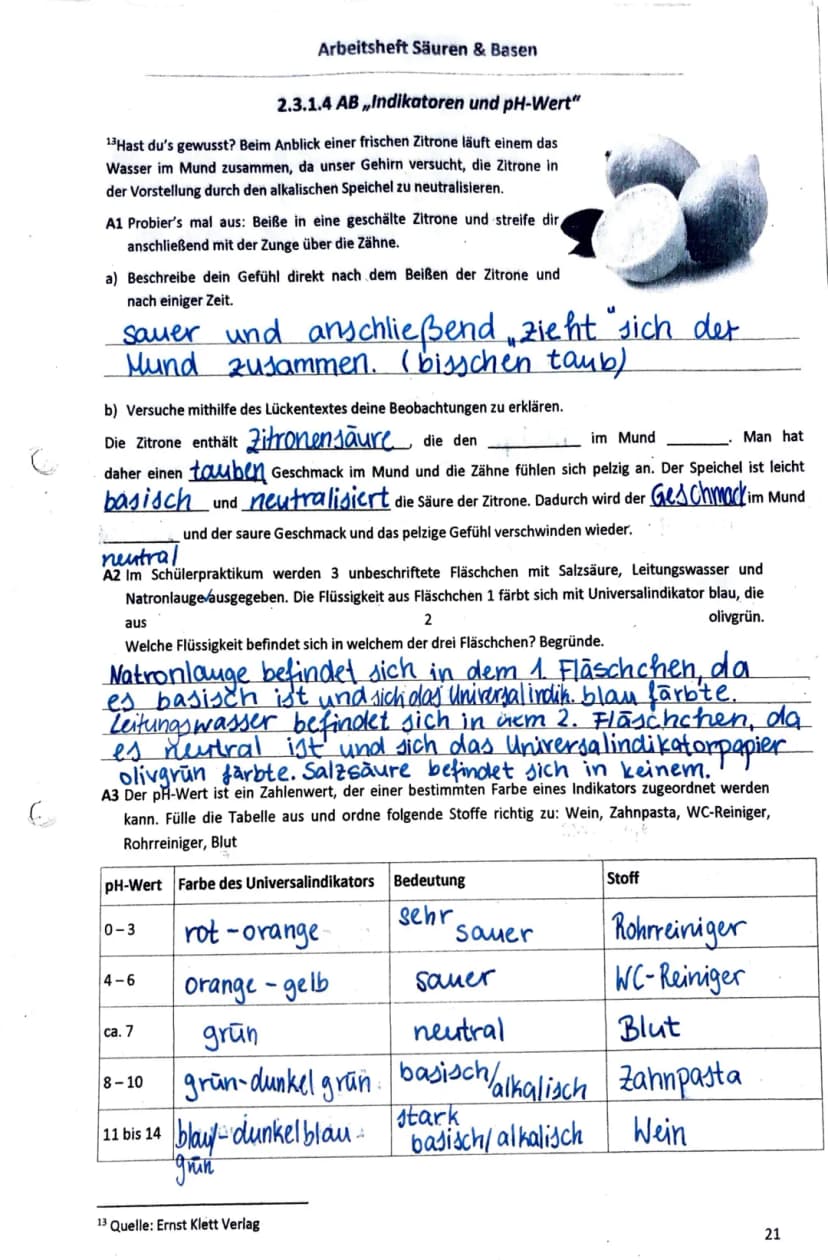 Arbeitsheft Säuren & Basen
2.3.1.4 AB „Indikatoren und pH-Wert“
¹³Hast du's gewusst? Beim Anblick einer frischen Zitrone läuft einem das
Wasser im Mund zusammen, da unser Gehirn versucht, die Zitrone in
der Vorstellung durch den alkalischen Speichel zu neutralisieren.
A1 Probier's mal aus: Beiße in eine geschälte Zitrone und streife dir
anschließend mit der Zunge über die Zähne.
a) Beschreibe dein Gefühl direkt nach dem Beißen der Zitrone und
nach einiger Zeit.
sauer und anschließend „zieht“ sich der
Mund zusammen. (bisschen taub)
b) Versuche mithilfe des Lückentextes deine Beobachtungen zu erklären.
Die Zitrone enthält Zitronensäure, die den ________ im Mund ______. Man hat
daher einen tauben Geschmack im Mund und die Zähne fühlen sich pelzig an. Der Speichel ist leicht
basisch und neutralisiert die Säure der Zitrone. Dadurch wird der Geschmack im Mund
________ und der saure Geschmack und das pelzige Gefühl verschwinden wieder.
neutral
A2 Im Schülerpraktikum werden 3 unbeschriftete Fläschchen mit Salzsäure, Leitungswasser und
Natronlauge ausgegeben. Die Flüssigkeit aus Fläschchen 1 färbt sich mit Universalindikator blau, die
aus 2 olivgrün.
Welche Flüssigkeit befindet sich in welchem der drei Fläschchen? Begründe.
Natronlauge befindet sich in dem 1. Fläschchen, da
es basisch ist und sich das Universalindik. blau färbte.
Leitungswasser befindet sich in dem 2. Fläschchen, da
es neutral ist und sich das Universalindikatorpapier
olivgrün färbte. Salzsäure befindet sich in keinem.
A3 Der pH-Wert ist ein Zahlenwert, der einer bestimmten Farbe eines Indikators zugeordnet werden
kann. Fülle die Tabelle aus und ordne folgende Stoffe richtig zu: Wein, Zahnpasta, WC-Reiniger,
Rohrreiniger, Blut
pH-Wert Farbe des Universalindikators Bedeutung Stoff
0 – 3 rot - orange sehr sauer Rohrreiniger
4 – 6 orange - gelb sauer WC-Reiniger
ca. 7 grün neutral Blut
8 – 10 grün-dunkel grün basisch/alkalisch Zahnpasta
11 bis 14 blau/-dunkelblau grün stark basisch/alkalisch Wein
¹³ Quelle: Ernst Klett Verlag
21